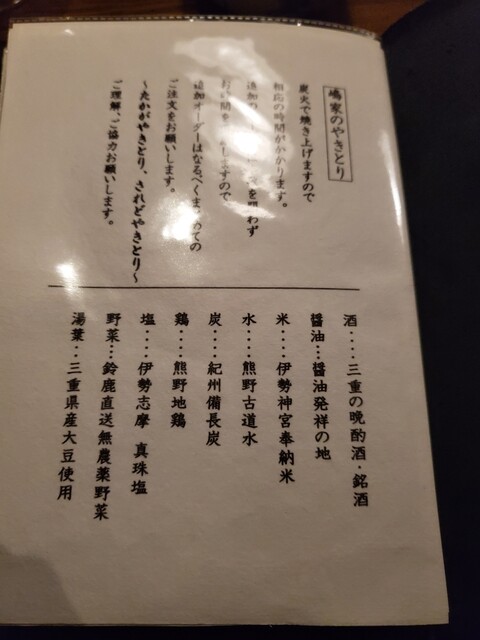 嶋家のやきとり
炭火で焼き上げますので
相応の時間がかかります。
追加の 問わず
お時間を しますので
追加オーダーはなるべくまとめての
ご注文をお願いします。
～たかがやきとり、されどやきとり～
ご理解、ご協力お願いします。
酒‥‥三重の晩酌酒・銘酒
醤油‥‥醤油発祥の地
米‥‥伊勢神宮奉納米
水‥‥熊野古道水
炭‥‥紀州備長炭
鶏‥‥熊野地鶏
塩‥‥伊勢志摩 真珠塩
野菜‥‥鈴鹿直送無農薬野菜
湯葉‥‥三重県産大豆使用